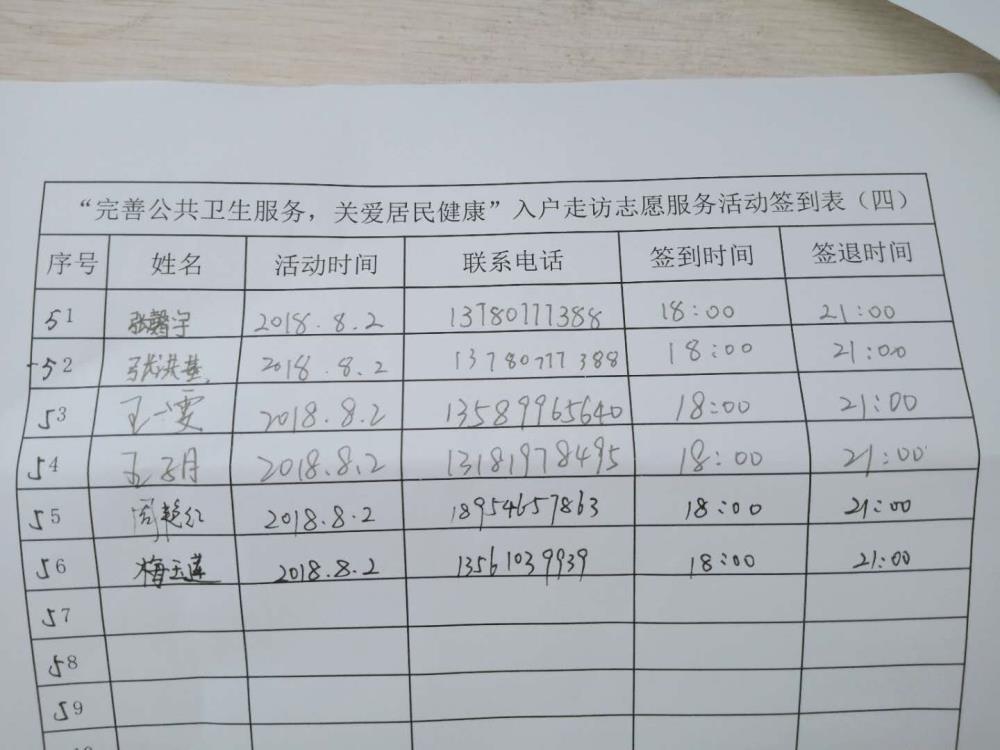 “完善公共卫生服务，关爱居民健康”入户走访志愿服务活动签到表（四）
序号 姓名 活动时间 联系电话 签到时间 签退时间
51 张馨宇 2018.8.2 13780777388 18:00 21:00
52 张洪基 2018.8.2 13780777388 18:00 21:00
53 王一雯 2018.8.2 13589965640 18:00 21:00
54 王子月 2018.8.2 13181978495 18:00 21:00
55 周艳红 2018.8.2 18954657863 18:00 21:00
56 梅玉莲 2018.8.2 13561039939 18:00 21:00
57
58
59